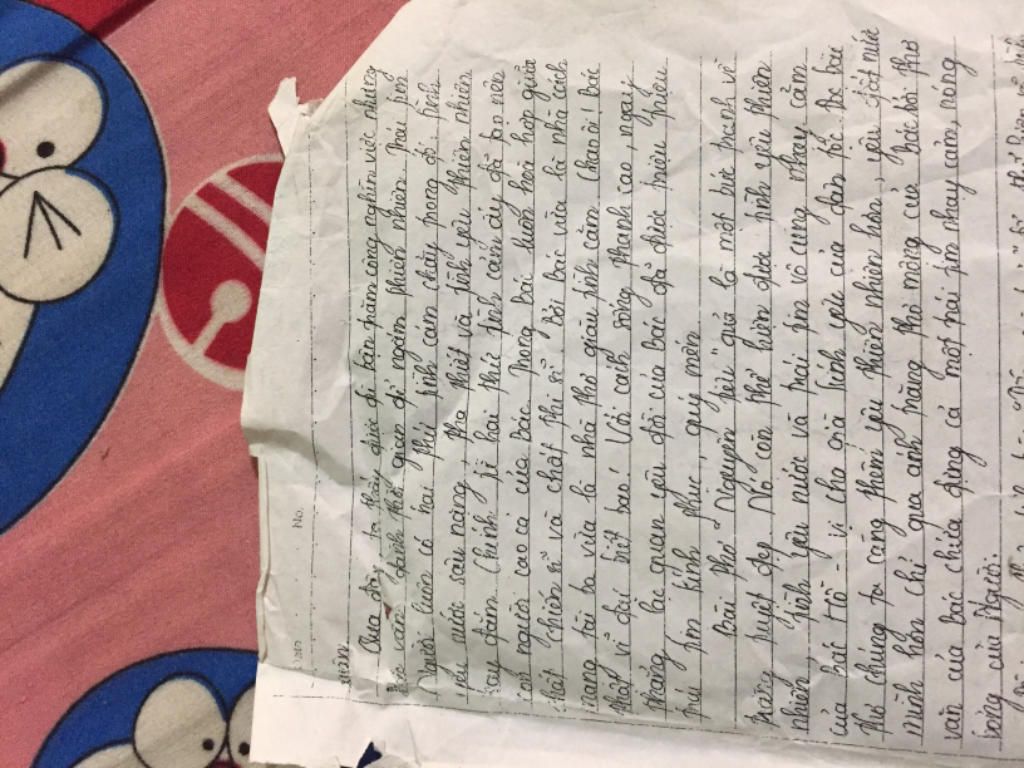 No.
miên
Qua đó, ta thấy được dù bận trăm công nghìn việc nhưng
Bác vẫn dành thời gian để ngắm thiên nhiên. Trái tim
Người luôn có hai thứ tình cảm chảy trong đó: tình
yêu nước sâu nặng, tha thiết và tình yêu thiên nhiên
say đắm. Chính vì hai thứ tình cảm ấy đã tạo nên
con người cao cả của Bác. Trong Bác luôn hài hợp giữa
chất chiến sĩ và chất thi sĩ. Bởi Bác vừa là nhà cách
mạng tài ba vừa là nhà thơ giàu tình cảm. Chao ôi! Bác
thật vĩ đại biết bao! Với cách sống thanh cao, ngay
thẳng, lạc quan yêu đời của Bác đã được triệu triệu
trái tim kính phục, quý mến.
Bài thơ "Nguyên tiêu" quả là một bức tranh về
trăng tuyệt đẹp. Nó còn thể hiện được tình yêu thiên
nhiên, tình yêu nước và trái tim vô cùng nhạy cảm
của Bác Hồ - vị cha già kính yêu của dân tộc. Đọc bài
thơ chúng ta càng thêm yêu thiên nhiên hơn, yêu đất nước
mình hơn. Chỉ qua ánh trăng thơ mộng của bài thơ
văn của bác chứa đựng cả một trái tim nhạy cảm, nóng
bỏng của Người.